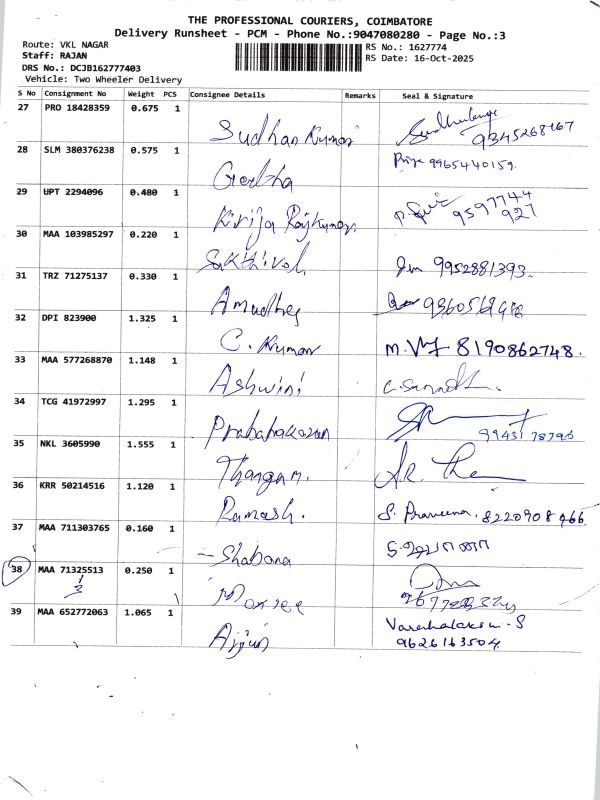 THE PROFESSIONAL COURIERS, COIMBATORE
Delivery Runsheet - PCM - Phone No.:9047080280 - Page No.:3
Route: VKL NAGAR
RS No.: 1627774
Staff: RAJAN
RS Date: 16-Oct-2025
DRS No.: DCJB162777403
Vehicle: Two Wheeler Delivery
S No Consignment No Weight PCS Consignee Details Remarks Seal & Signature
27 PRO 18428359 0.675 1
Sudhan Kumar
28 SLM 380376238 0.575 1
Priya 9965440159
Geetha
29 UPT 2294096 0.480 1
9597744
927
Kirija Rajkumar
30 MAA 103985297 0.220 1
Sakthivel 9952881393
31 TRZ 71275137 0.330 1
32 DPI 823900 1.325 1
C. Kumar 8190862748.
33 MAA 577268870 1.148 1
Ashwini
34 TCG 41972997 1.295 1
Prabahakaran
35 NKL 3605990 1.555 1
Thangam.
36 KRR 50214516 1.120 1
Ramash. S. Praveena. 8220908966
37 MAA 711303765 0.160 1
Shabana
38 MAA 71325513 0.250 1
3
39 MAA 652772063 1.065 1
Arjun 9626163504